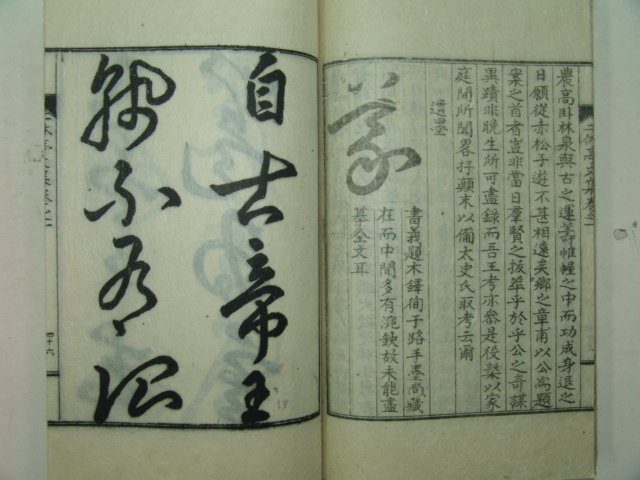 二休亭文集卷之一
農高臥林泉與古之運籌帷幄之中而功成身退之
日願從赤松子遊不甚相遠矣鄉之章甫以公為題
案之首者豈非當日羣賢之拔萃乎於乎公之奇謀
異蹟非晩生所可盡錄而吾王考亦參是役槩以家
庭間所聞畧抒顚末以備太史氏取考云爾
遺墨
義
書義題木鐸徇于路手墨尚藏
在而中間多有鈌故未能盡
摹全文耳
自古帝王
孰不
四十六